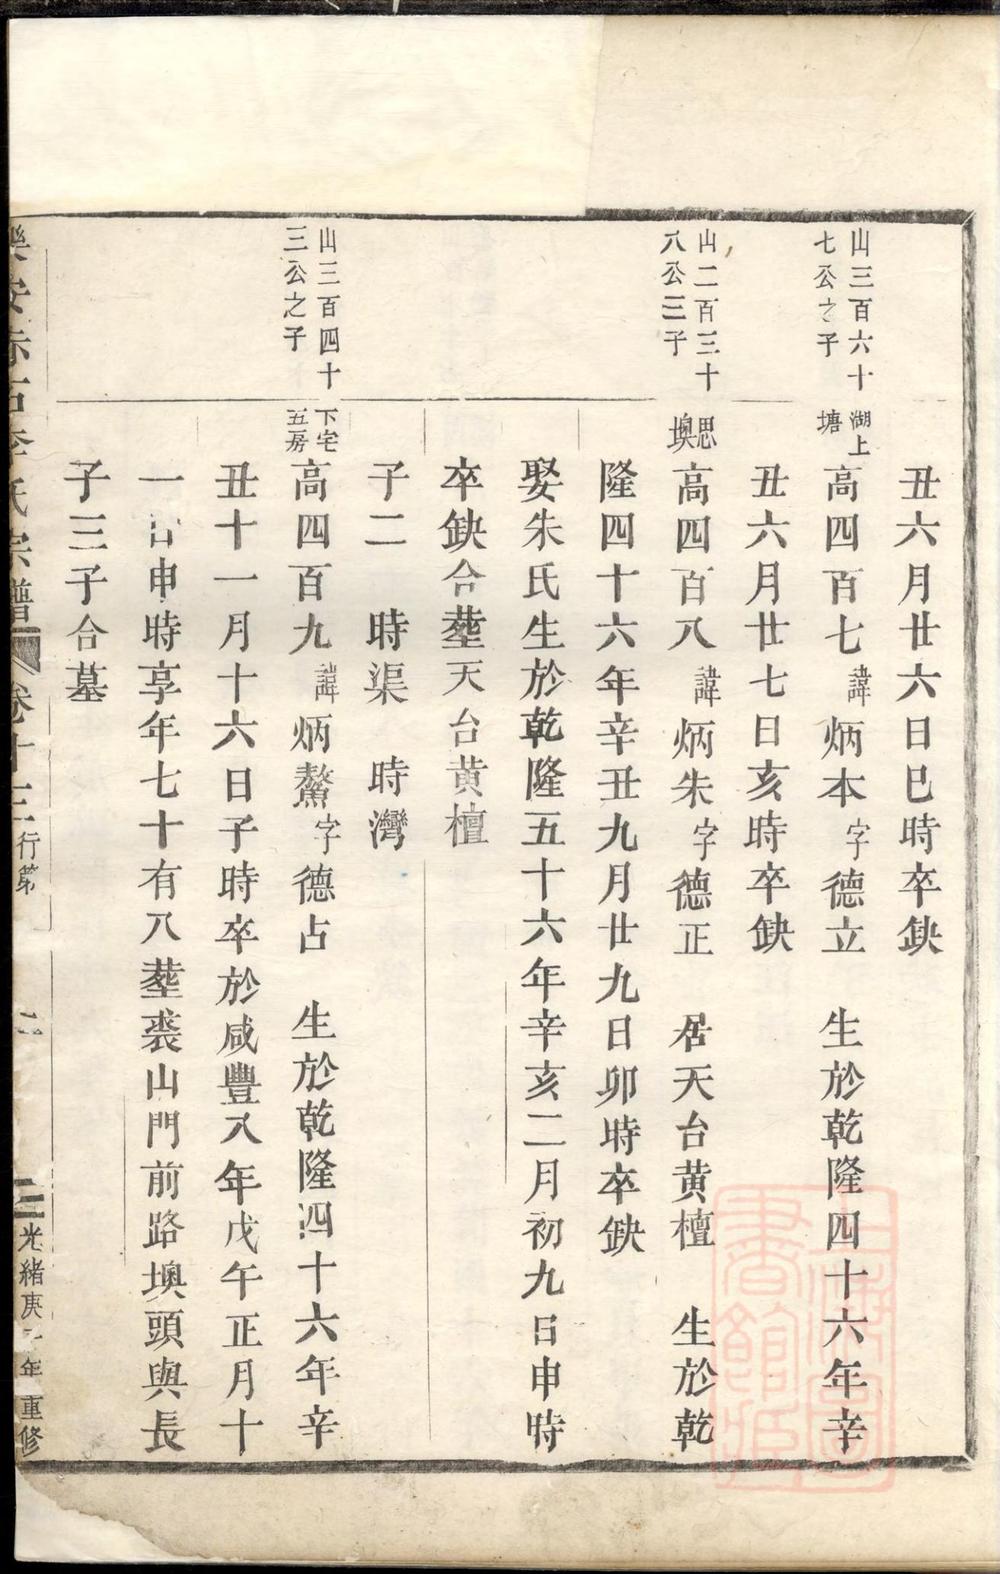 丑六月廿六日巳時卒缺
山三百六十
七公之子
湖上
塘
高四百七諱炳本字德立 生於乾隆四十六年辛
丑六月廿七日亥時卒缺
山二百三十
八公三子
思
墺
高四百八諱炳朱字德正 居天台黄檀 生於乾
隆四十六年辛丑九月廿九日卯時卒缺
娶朱氏生於乾隆五十六年辛亥二月初九日申時
卒缺合塟天台黄檀
子二 時渠 時灣
山三百四十
三公之子
下宅
五房
高四百九諱炳鰲字德占 生於乾隆四十六年辛
丑十一月十六日子時卒於咸豐八年戊午正月十
一日申時享年七十有八塟裘山門前路墺頭與長
子三子合墓
樂安赤石李氏宗譜 卷十三 行第 二 光緒庚 年重修
上海圖書館藏